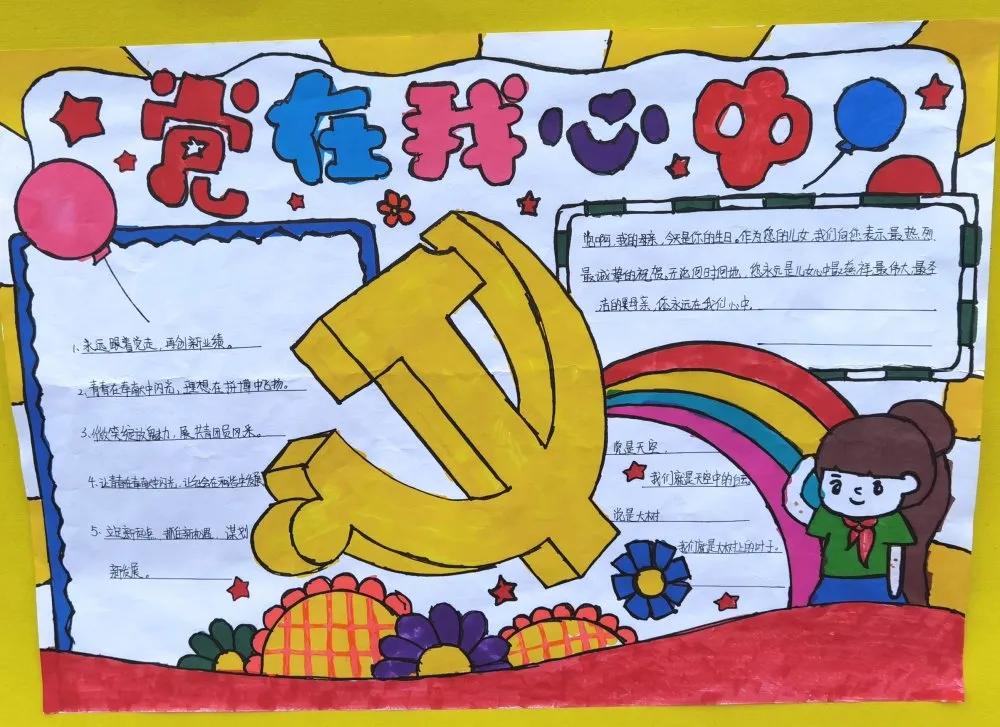 党在我心中
1、永远跟着党走，再创新业绩。
2、青春在奉献中闪光，理想在拼搏中飞扬。
3、绽放魅力，展共青团员风采。
4、让青春在奉献中闪光，让社会在和谐中发展
5、立足新起点，抓住新机遇，谋划
新发展。
党啊，我的母亲，今天是你的生日。作为您的儿女，我们向你表示最热烈
最诚挚的祝贺，无论何时何地，您永远是儿女心中最慈祥、最伟大、最圣
洁的母亲，你永远在我们心中。
党是天空，
我们就是天空中的白云
党是大树
我们就是大树上的叶子。